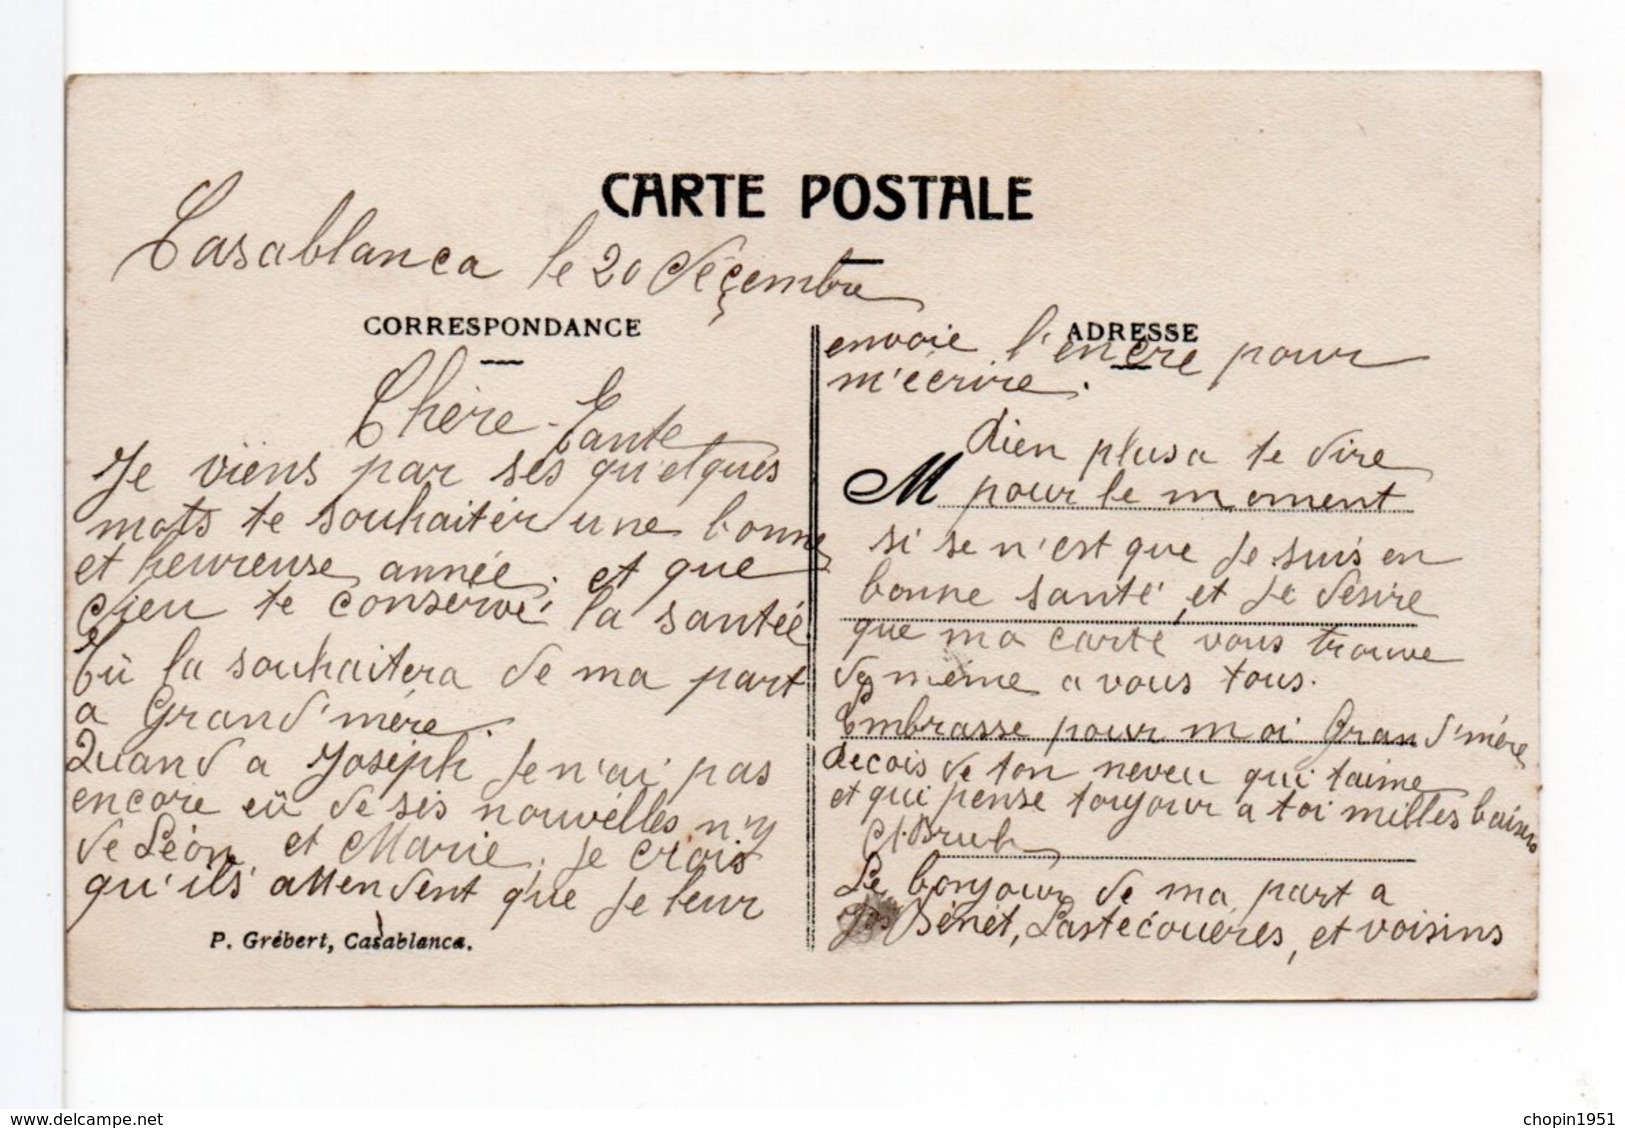 CARTE POSTALE
Casablanca le 20 décembre
CORRESPONDANCE
Chère Tante
Je viens par ses quelques
mots te souhaiter une bonne
et heureuse année. et que
dieu te conserve la santée
tû la souhaitera de ma part
a Grand'mére.
Quand a Joseph Je n'ai pas
encore eû de ses nouvelles n'y
de Léon et Marie. Je crois
qu'ils attendent que Je leur
P. Grébert, Casablanca.
ADRESSE
envoie l'encre pour
m'écrire.
Rien plus a te dire
M
pour le moment
si se n'est que Je suis en
bonne santé et Je désire
que ma carte vous trouve
de même a vous tous.
Embrasse pour moi Grand'mére
Recois de ton neveu qui t'aime
et qui pense toujour a toi milles baisers
Le bonjour de ma part a
Bénet, Lastécouéres, et voisins
chopin1951